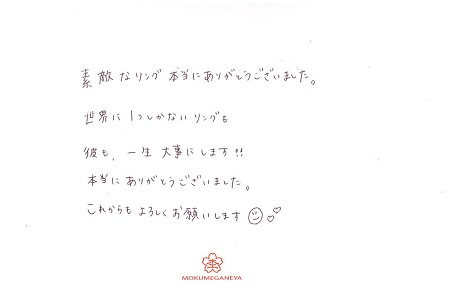 素敵なリング本当にありがとうございました。
世界に1つしかないリングも
彼も、一生大事にします!!
本当にありがとうございました。
これからもよろしくお願いします
MOKUMEGANEYA